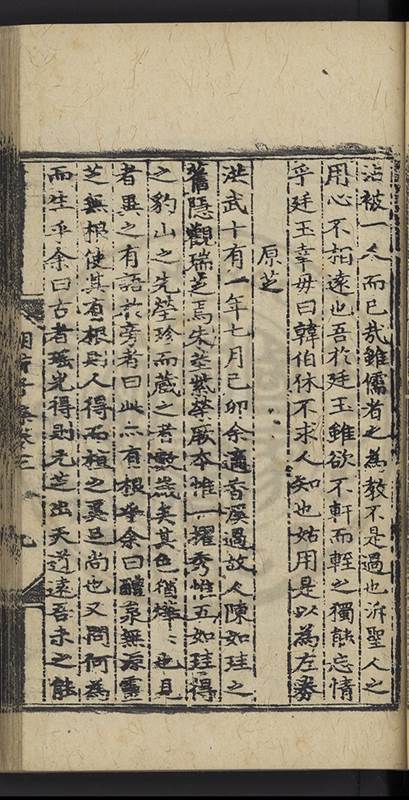 沾被一人而已哉雖儒者之為教不是過也泝聖人之
用心不相遠也吾於廷玉雖欲不軒而輊之獨能忘情
乎廷玉幸毋曰韓伯休不求人知也姑用是以為左券
原芝
洪武十有一年七月己卯余適香溪過故人陳如珪之
舊隱觀瑞芝焉朱莖紫葉厥本惟一擢秀惟五如珪得
之豹山之先塋珍而蔵之者數歲矣其色猶燁〻也見
者異之有語於旁者曰此亦有根乎余曰醴泉無源靈
芝無根使其有根則人得而植之異巳尚也又問何為
而生乎余曰古者瑶光得則元芝出天道遠吾未之能